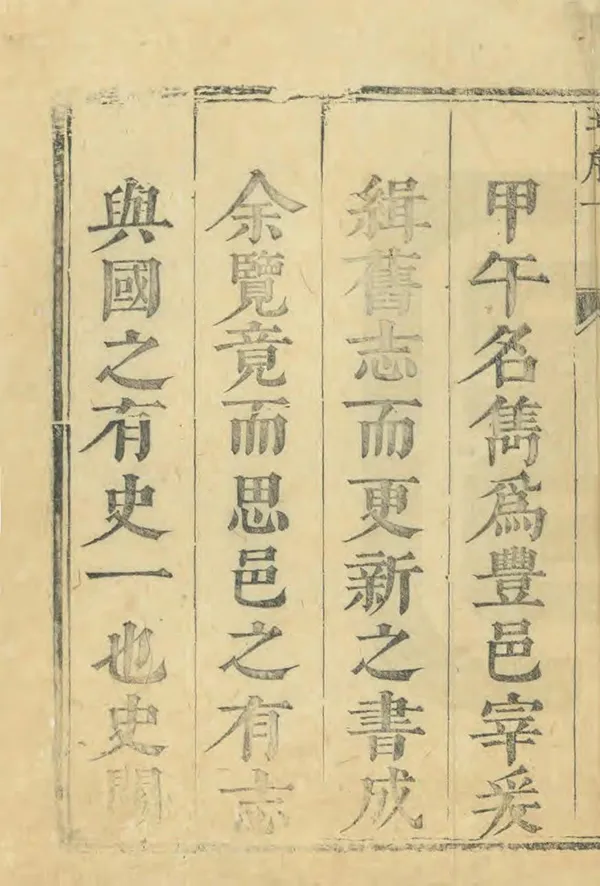 甲午名雋爲豐邑宰爰
緝舊志而更新之書成
余覽竟而思邑之有志
與國之有史一也史